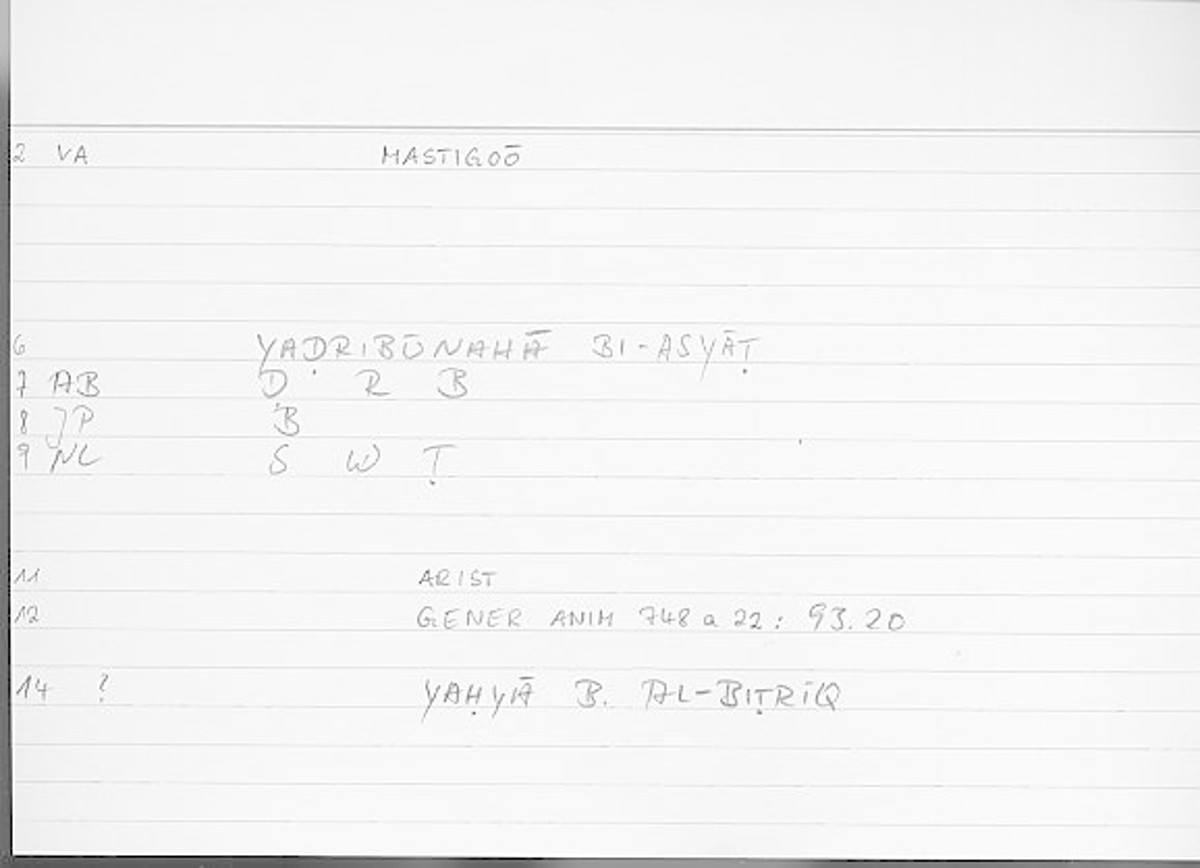 2 VA MASTIGOŌ
6 YAḌRIBŪNAHĀ BI-ASYĀṬ
7 AB Ḍ R B
8 JP B
9 NL S W Ṭ
11 ARIST
12 GENER ANIM 748 a 22: 93.20
14 ? YAḤYĀ B. AL-BIṬRĪQ